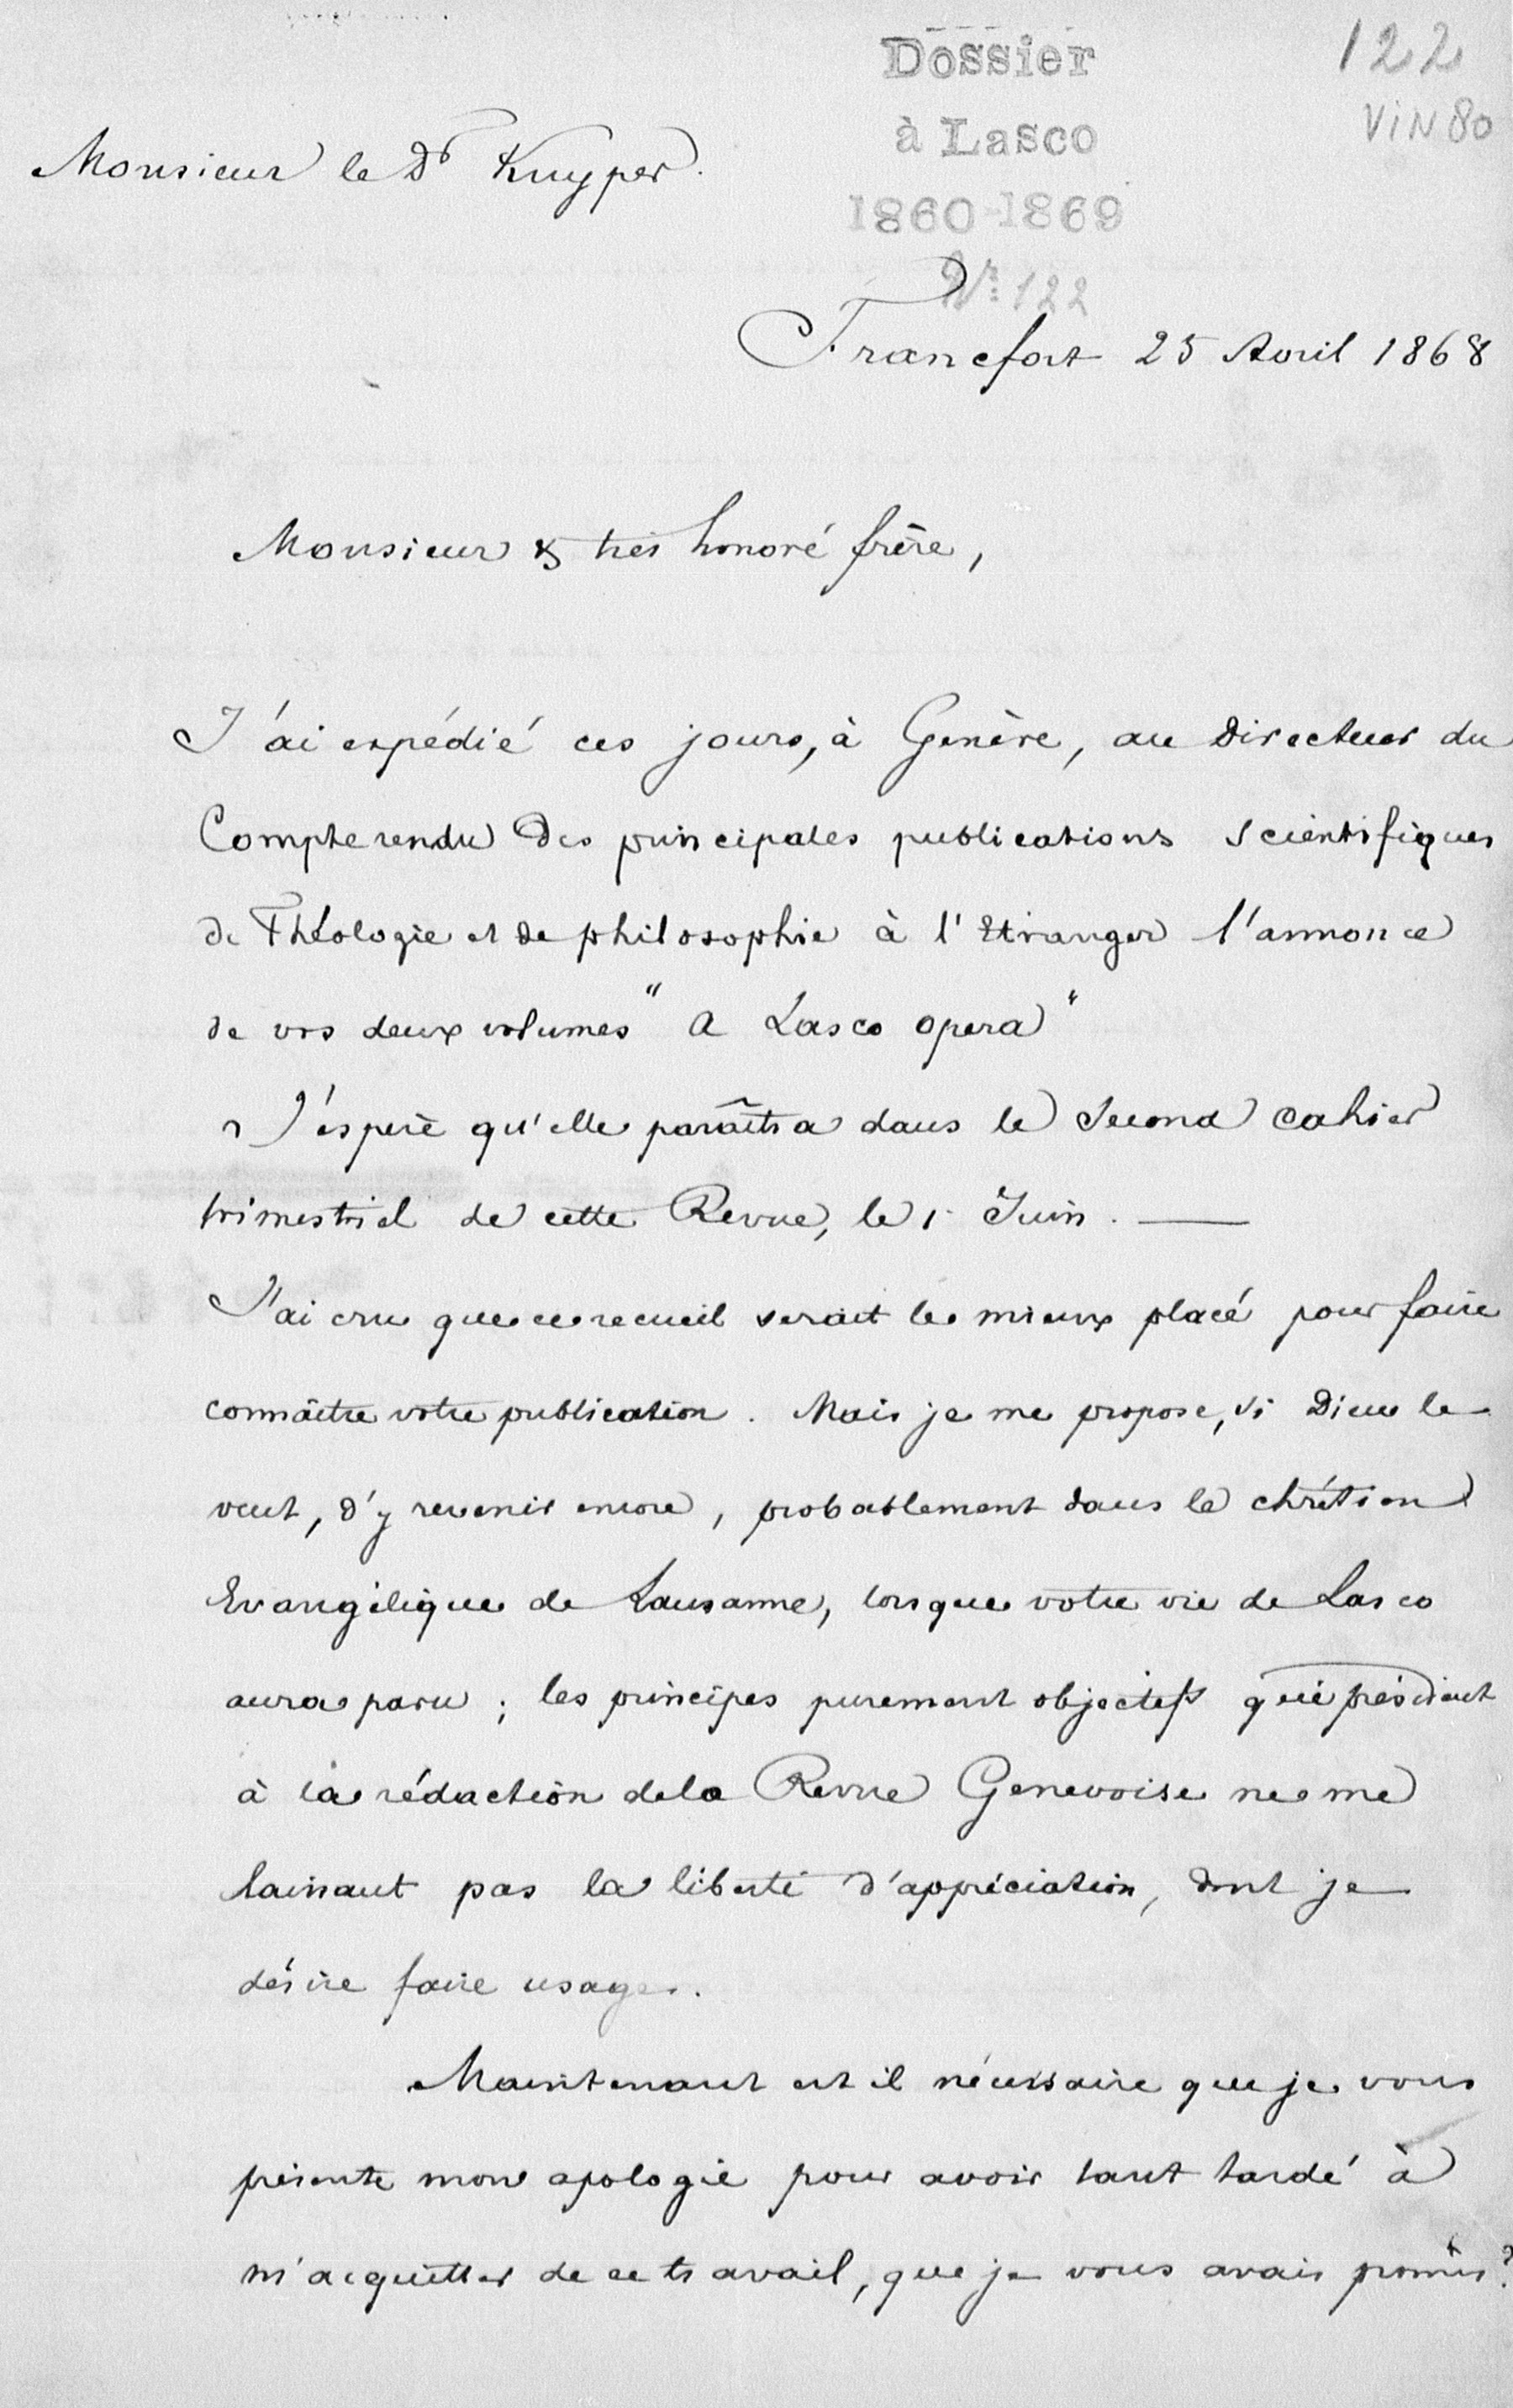 122
VIN 80
Dossier
à Lasco
1860-1869
N: 122
Monsieur le Dr Kuyper.
Francfort 25 Avril 1868
Monsieur & très honoré frère,
J'ai expédié ces jours, à Genève, au Directeur du
Compte rendu des principales publications scientifiques
de Théologie et de philosophie à l'Etranger l'annonce
de vos deux volumes "a Lasco opera"
J'espère qu'elle paraîtra dans le second cahier
trimestriel de cette Revue, le 1 Juin. —
J'ai cru que ce recueil serait le mieux placé pour faire
connaître votre publication. Mais je me propose, si Dieu le
veut, d'y revenir encore, probablement dans le chrétien
Evangélique de Lausanne, lorsque votre vie de Lasco
aura paru ; les principes purement objectifs qui président
à la rédaction de la Revue Genevoise ne me
laissant pas la liberté d'appréciation, dont je
désire faire usage.
Maintenant est il nécessaire que je vous
présente mon apologie pour avoir tant tardé à
m'acquitter de ce travail, que je vous avais promis?